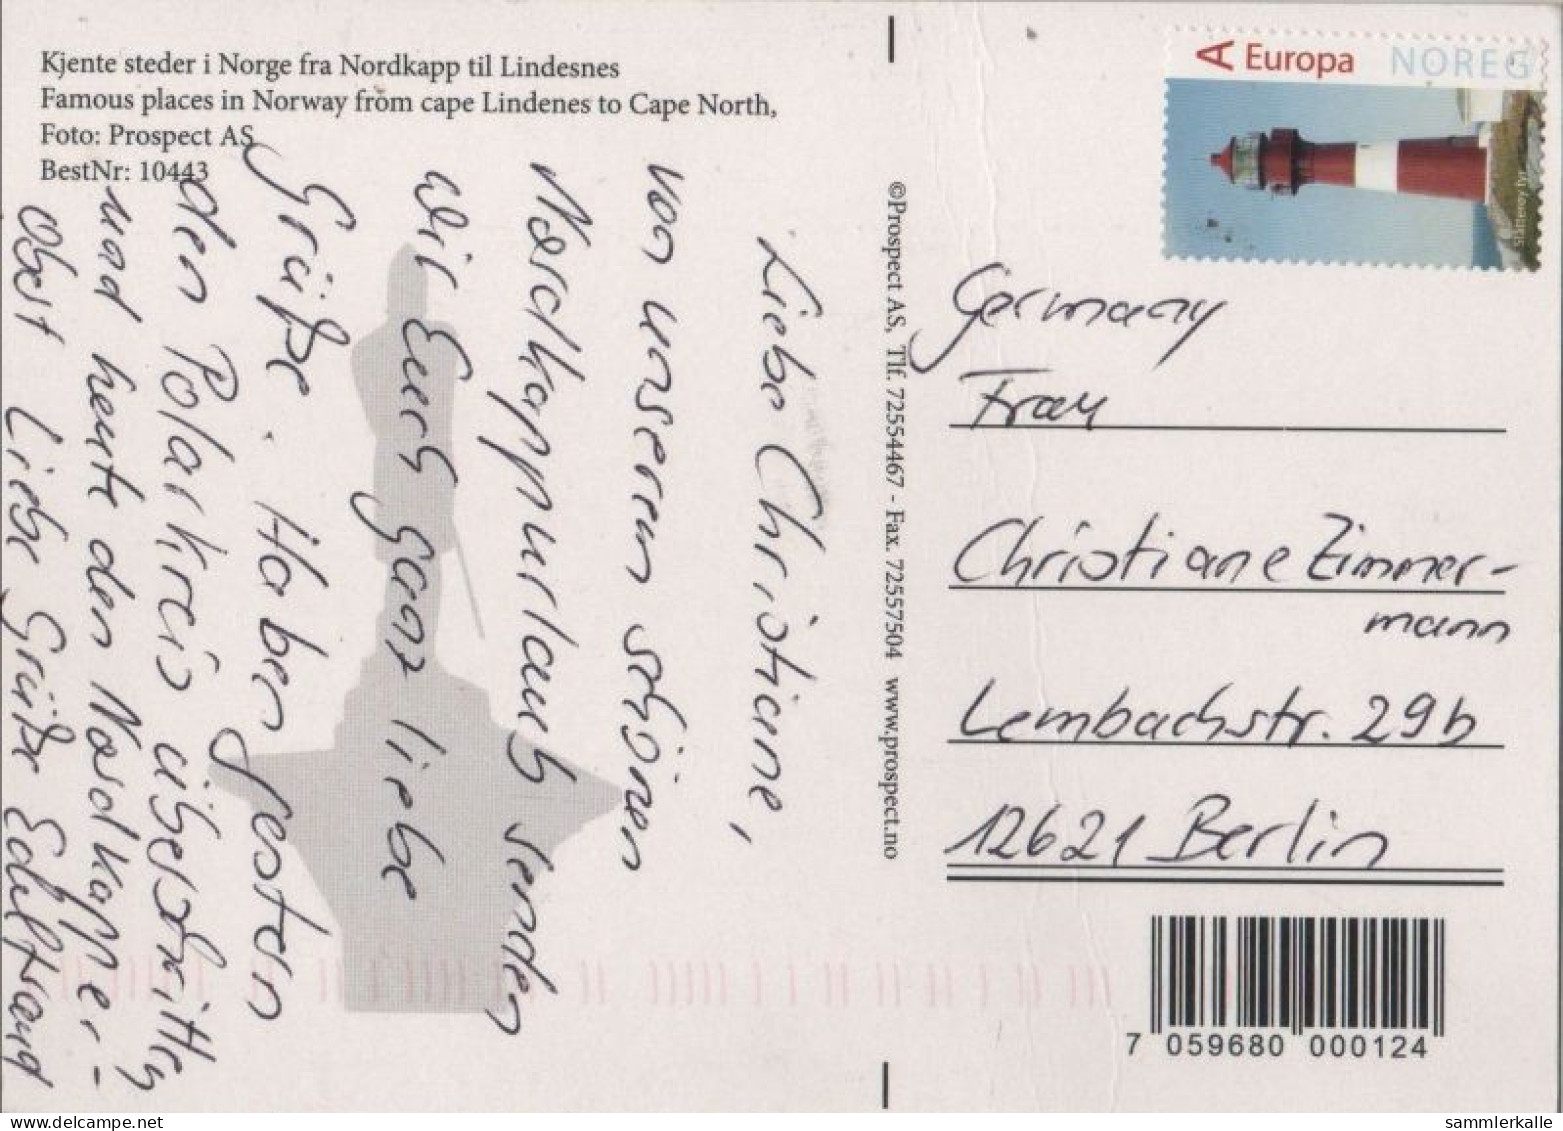 Kjente steder i Norge fra Nordkapp til Lindesnes
Famous places in Norway from cape Lindenes to Cape North,
Foto: Prospect AS
BestNr: 10443
Liebe Christiane,
von unserem schönen
Nordkappurlaub senden
wir Euch ganz liebe
Grüße. Haben gestern
den Polarkreis überschritten
und heute den Nordkapper-
Obst Liebe Grüße Edeltraud
©Prospect AS, Tlf. 72554467 - Fax. 72557504 www.prospect.no
A Europa NOREG
Slåtterøy fyr
Germany
Frau
Christiane Zimmer-
mann
Lembachstr. 29b
12621 Berlin
7 059680 000124
www.delcampe.net
sammlerkalle